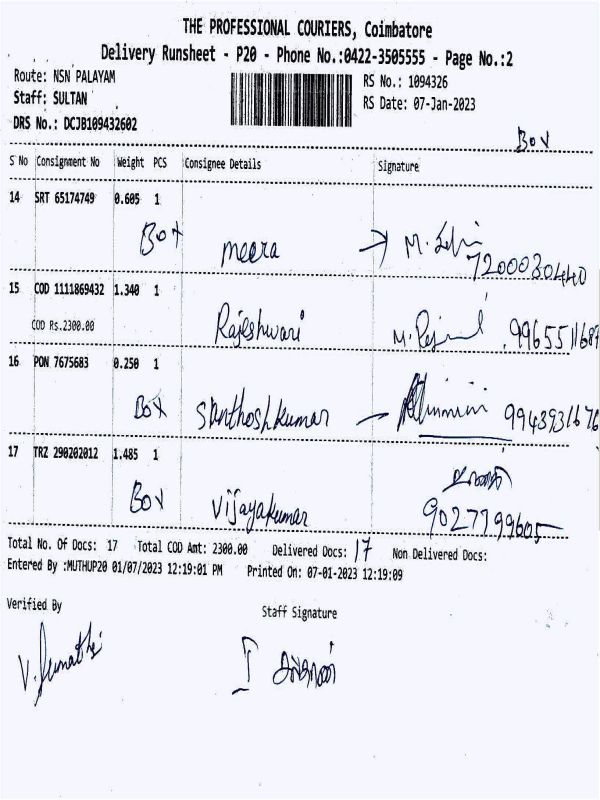 THE PROFESSIONAL COURIERS, Coimbatore
Delivery Runsheet - P20 - Phone No.:0422-3505555 - Page No.:2
Route: NSN PALAYAM RS No.: 1094326
Staff: SULTAN RS Date: 07-Jan-2023
DRS No.: DCJB109432602
Box
S No Consignment No Weight PCS Consignee Details Signature
14 SRT 65174749 0.605 1
Box meera → M.
7200030440
15 COD 1111869432 1.340 1
COD Rs.2300.00 Rajeshwari M. 9965511687
16 PON 7675683 0.250 1
Box Santhoshkumar 9943931676
17 TRZ 290202012 1.485 1
Box Vijayakumar
9027799605
Total No. Of Docs: 17 Total COD Amt: 2300.00 Delivered Docs: 17 Non Delivered Docs:
Entered By :MUTHUP20 01/07/2023 12:19:01 PM Printed On: 07-01-2023 12:19:09
Verified By Staff Signature
V. Sumathi சுல்தான்